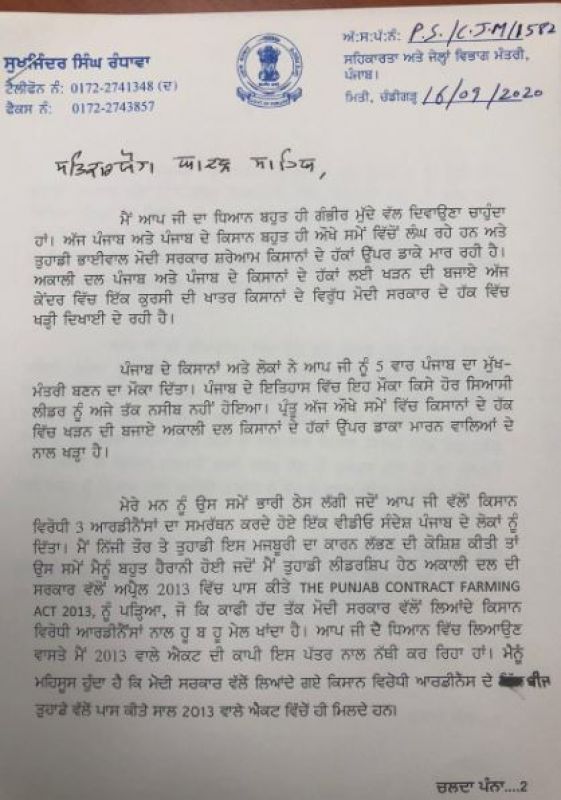 ਸੁਖਜਿੰਦਰ ਸਿੰਘ ਰੰਧਾਵਾ
ਟੈਲੀਫੋਨ ਨੰ: 0172-2741348 (ਦ)
ਫੈਕਸ ਨੰ: 0172-2743857
ਅੰ:ਸ:ਪੱ:ਨੰ: P.S./C.J.M/1582
ਸਹਿਕਾਰਤਾ ਅਤੇ ਜੇਲ੍ਹਾਂ ਵਿਭਾਗ ਮੰਤਰੀ,
ਪੰਜਾਬ।
ਮਿਤੀ, ਚੰਡੀਗੜ੍ਹ 16/09/2020
ਸਤਿਕਾਰਯੋਗ ਬਾਦਲ ਸਾਹਿਬ,
ਮੈਂ ਆਪ ਜੀ ਦਾ ਧਿਆਨ ਬਹੁਤ ਹੀ ਗੰਭੀਰ ਮੁੱਦੇ ਵੱਲ ਦਿਵਾਉਣਾ ਚਾਹੁੰਦਾ
ਹਾਂ। ਅੱਜ ਪੰਜਾਬ ਅਤੇ ਪੰਜਾਬ ਦੇ ਕਿਸਾਨ ਬਹੁਤ ਹੀ ਔਖੇ ਸਮੇਂ ਵਿੱਚੋਂ ਲੰਘ ਰਹੇ ਹਨ ਅਤੇ
ਤੁਹਾਡੀ ਭਾਈਵਾਲ ਮੋਦੀ ਸਰਕਾਰ ਸ਼ਰੇਆਮ ਕਿਸਾਨਾਂ ਦੇ ਹੱਕਾਂ ਉੱਪਰ ਡਾਕੇ ਮਾਰ ਰਹੀ ਹੈ।
ਅਕਾਲੀ ਦਲ ਪੰਜਾਬ ਅਤੇ ਪੰਜਾਬ ਦੇ ਕਿਸਾਨਾਂ ਦੇ ਹੱਕਾਂ ਲਈ ਖੜਨ ਦੀ ਬਜਾਏ ਅੱਜ
ਕੇਂਦਰ ਵਿੱਚ ਇੱਕ ਕੁਰਸੀ ਦੀ ਖਾਤਰ ਕਿਸਾਨਾਂ ਦੇ ਵਿਰੁੱਧ ਮੋਦੀ ਸਰਕਾਰ ਦੇ ਹੱਕ ਵਿੱਚ
ਖੜ੍ਹੀ ਦਿਖਾਈ ਦੇ ਰਹੀ ਹੈ।
ਪੰਜਾਬ ਦੇ ਕਿਸਾਨਾਂ ਅਤੇ ਲੋਕਾਂ ਨੇ ਆਪ ਜੀ ਨੂੰ 5 ਵਾਰ ਪੰਜਾਬ ਦਾ ਮੁੱਖ-
ਮੰਤਰੀ ਬਣਨ ਦਾ ਮੌਕਾ ਦਿੱਤਾ। ਪੰਜਾਬ ਦੇ ਇਤਿਹਾਸ ਵਿੱਚ ਇਹ ਮੌਕਾ ਕਿਸੇ ਹੋਰ ਸਿਆਸੀ
ਲੀਡਰ ਨੂੰ ਅਜੇ ਤੱਕ ਨਸੀਬ ਨਹੀਂ ਹੋਇਆ। ਪ੍ਰੰਤੂ ਅੱਜ ਔਖੇ ਸਮੇਂ ਵਿੱਚ ਕਿਸਾਨਾਂ ਦੇ ਹੱਕ
ਵਿੱਚ ਖੜਨ ਦੀ ਬਜਾਏ ਅਕਾਲੀ ਦਲ ਕਿਸਾਨਾਂ ਦੇ ਹੱਕਾਂ ਉੱਪਰ ਡਾਕਾ ਮਾਰਨ ਵਾਲਿਆਂ ਦੇ
ਨਾਲ ਖੜ੍ਹਾ ਹੈ।
ਮੇਰੇ ਮਨ ਨੂੰ ਉਸ ਸਮੇਂ ਭਾਰੀ ਠੇਸ ਲੱਗੀ ਜਦੋਂ ਆਪ ਜੀ ਵੱਲੋਂ ਕਿਸਾਨ
ਵਿਰੋਧੀ 3 ਆਰਡੀਨੈਂਸਾਂ ਦਾ ਸਮਰੱਥਨ ਕਰਦੇ ਹੋਏ ਇਕ ਵੀਡੀਓ ਸੰਦੇਸ਼ ਪੰਜਾਬ ਦੇ ਲੋਕਾਂ ਨੂੰ
ਦਿੱਤਾ। ਮੈਂ ਨਿੱਜੀ ਤੌਰ ਤੇ ਤੁਹਾਡੀ ਇਸ ਮਜਬੂਰੀ ਦਾ ਕਾਰਨ ਲੱਭਣ ਦੀ ਕੋਸ਼ਿਸ਼ ਕੀਤੀ ਤਾਂ
ਉਸ ਸਮੇਂ ਮੈਨੂੰ ਬਹੁਤ ਹੈਰਾਨੀ ਹੋਈ ਜਦੋਂ ਮੈਂ ਤੁਹਾਡੀ ਲੀਡਰਸ਼ਿਪ ਹੇਠ ਅਕਾਲੀ ਦਲ ਦੀ
ਸਰਕਾਰ ਵੱਲੋਂ ਅਪ੍ਰੈਲ 2013 ਵਿੱਚ ਪਾਸ ਕੀਤੇ THE PUNJAB CONTRACT FARMING
ACT 2013, ਨੂੰ ਪੜ੍ਹਿਆ, ਜੋ ਕਿ ਕਾਫੀ ਹੱਦ ਤੱਕ ਮੋਦੀ ਸਰਕਾਰ ਵੱਲੋਂ ਲਿਆਂਦੇ ਕਿਸਾਨ
ਵਿਰੋਧੀ ਆਰਡੀਨੈਂਸਾਂ ਨਾਲ ਹੂ ਬ ਹੂ ਮੇਲ ਖਾਂਦਾ ਹੈ। ਆਪ ਜੀ ਦੇ ਧਿਆਨ ਵਿੱਚ ਲਿਆਉਣ
ਵਾਸਤੇ ਮੈਂ 2013 ਵਾਲੇ ਐਕਟ ਦੀ ਕਾਪੀ ਇਸ ਪੱਤਰ ਨਾਲ ਨੱਥੀ ਕਰ ਰਿਹਾ ਹਾਂ। ਮੈਨੂੰ
ਮਹਿਸੂਸ ਹੁੰਦਾ ਹੈ ਕਿ ਮੋਦੀ ਸਰਕਾਰ ਵੱਲੋਂ ਲਿਆਂਦੇ ਗਏ ਕਿਸਾਨ ਵਿਰੋਧੀ ਆਰਡੀਨੈਂਸ ਦੇ ਬੀਜ
ਤੁਹਾਡੇ ਵੱਲੋਂ ਪਾਸ ਕੀਤੇ ਸਾਲ 2013 ਵਾਲੇ ਐਕਟ ਵਿੱਚੋਂ ਹੀ ਮਿਲਦੇ ਹਨ।
ਚਲਦਾ ਪੰਨਾ....2